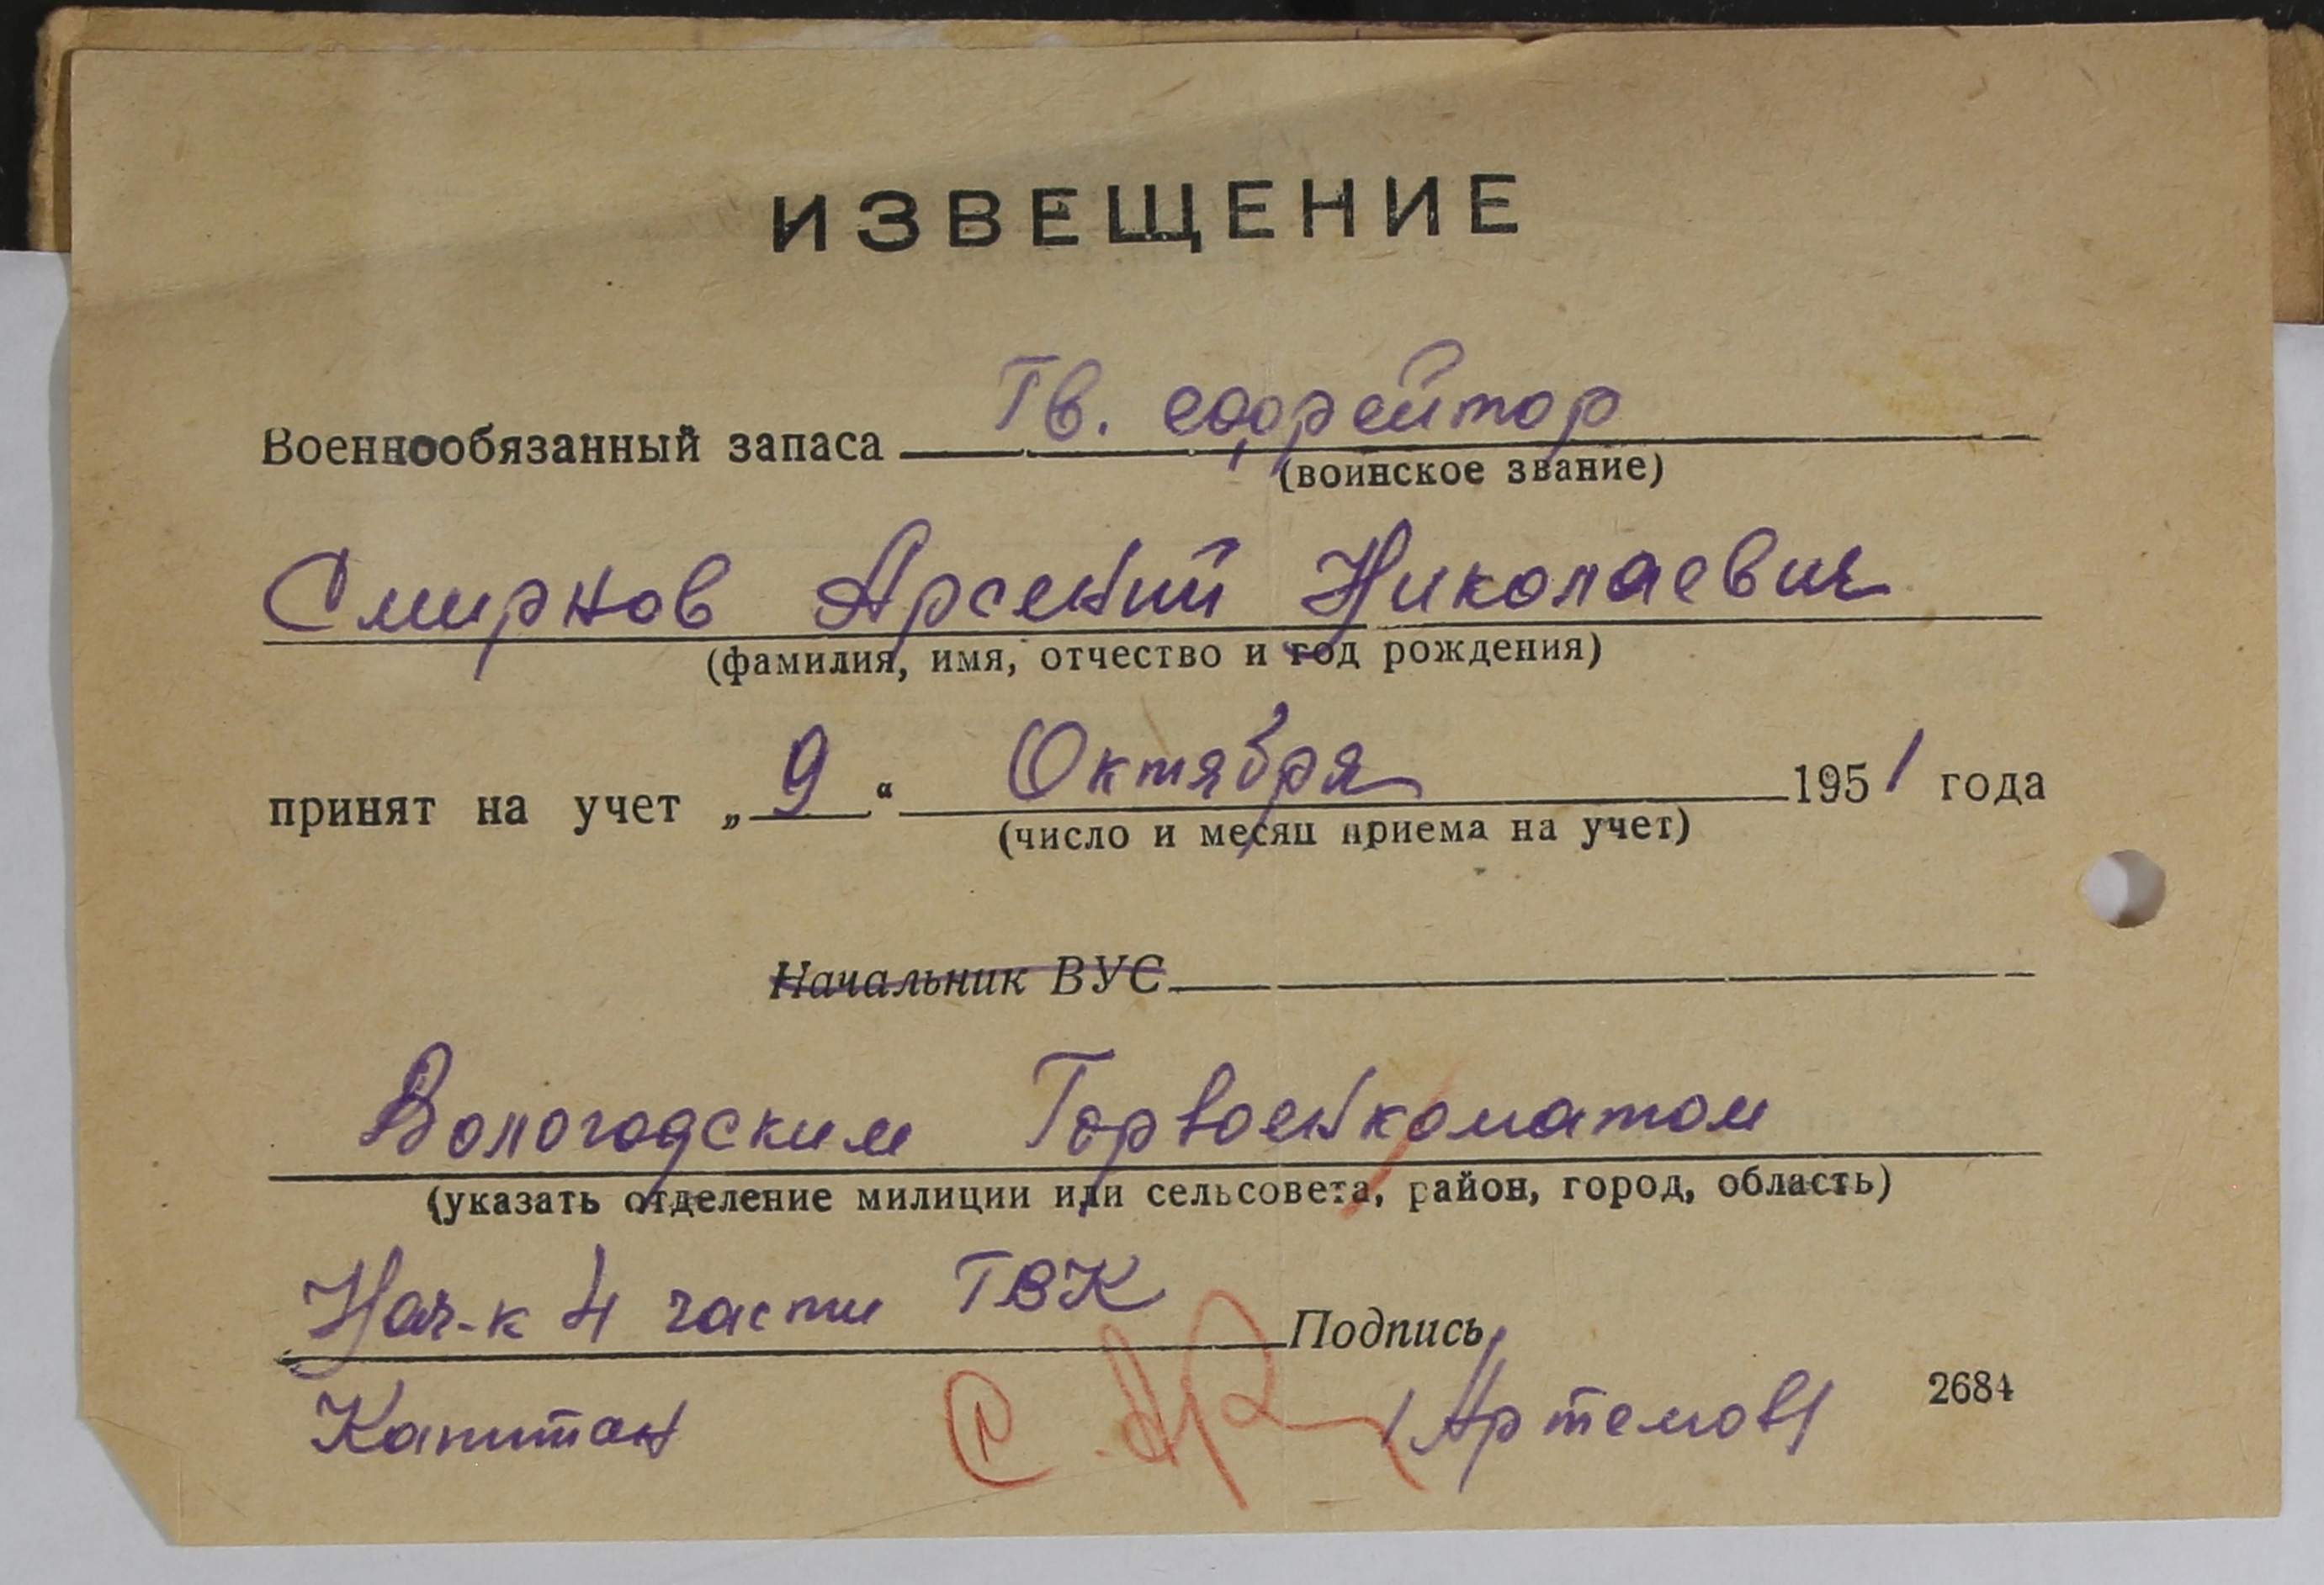 ИЗВЕЩЕНИЕ
Военнообязанный запаса Гв. ефрейтор
(воинское звание)
Смирнов Арсений Николаевич
(фамилия, имя, отчество и год рождения)
принят на учет „9“ Октября 1951 года
(число и месяц приема на учет)
Начальник ВУС
Вологодским Горвоенкоматом
(указать отделение милиции или сельсовета, район, город, область)
Нач-к 4 части ГВК
Подпись
Капитан /Артемов/ 2684